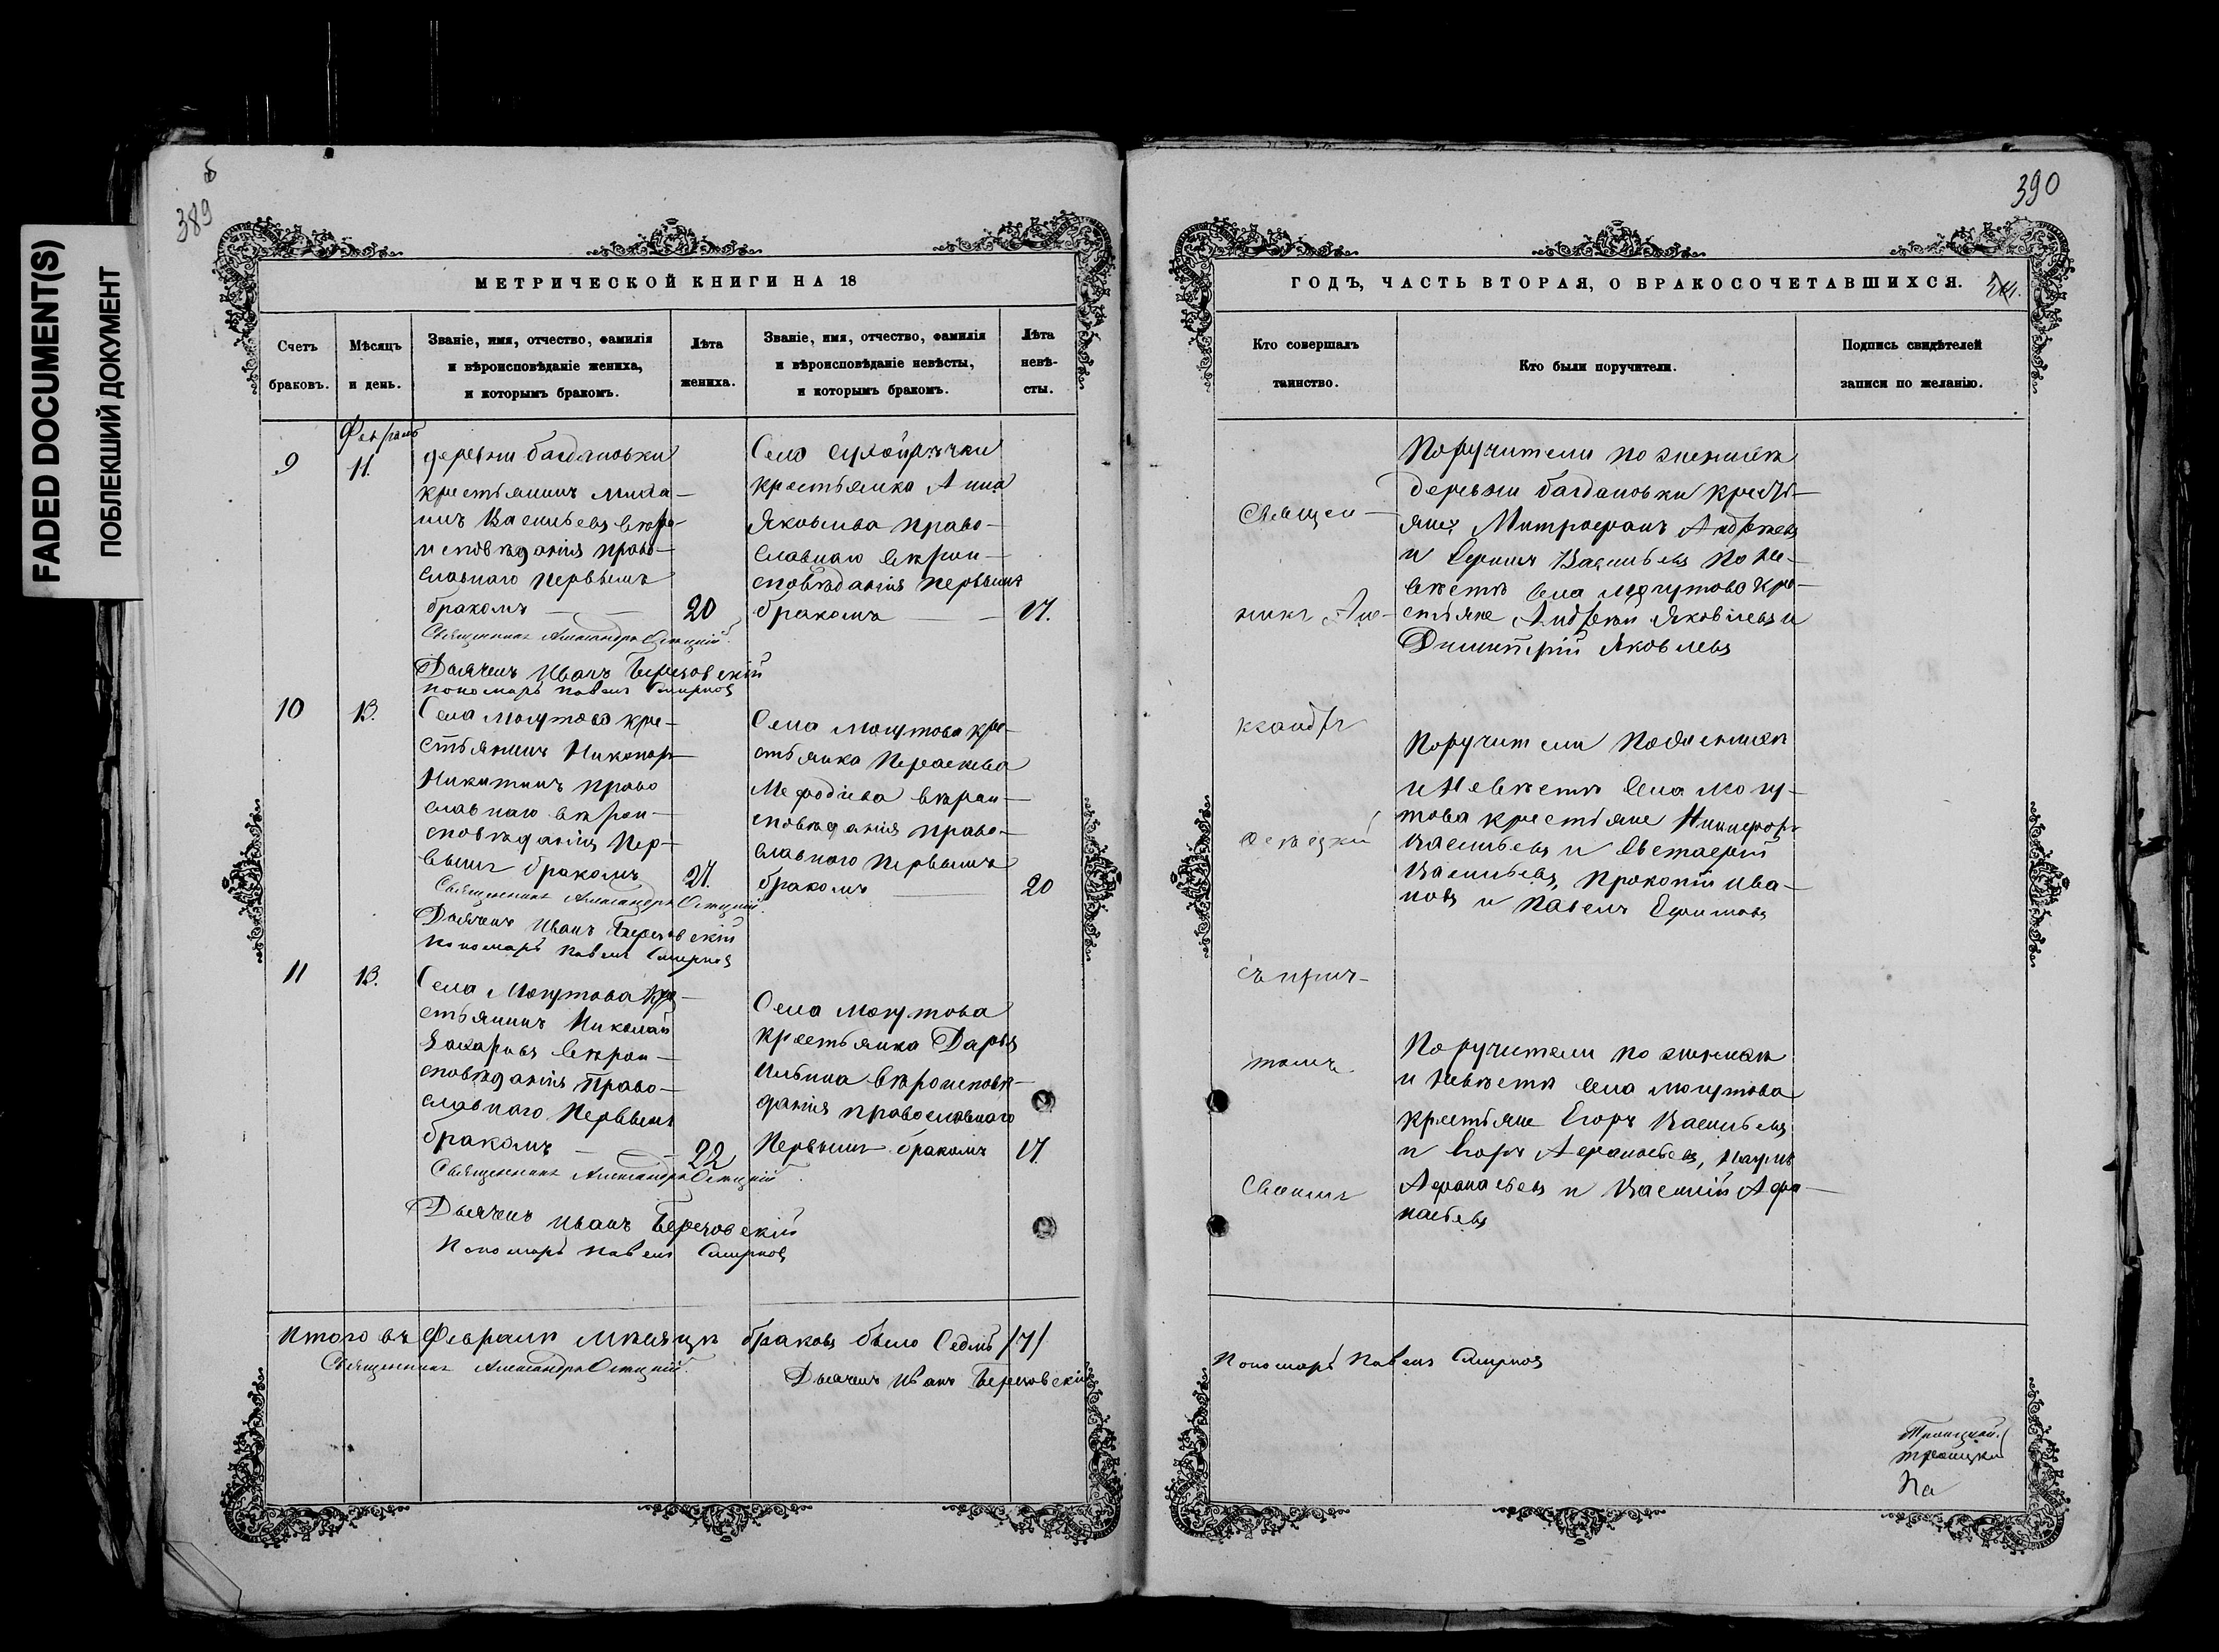 FADED DOCUMENT(S)
ПОБЛЕКШИЙ ДОКУМЕНТ
389
МЕТРИЧЕСКОЙ КНИГИ НА 18
Счетъ браковъ.
Мѣсяцъ и день.
Званіе, имя, отчество, фамилія
и вѣроисповѣданіе жениха,
и которымъ бракомъ.
Лѣта жениха.
Званіе, имя, отчество, фамилія
и вѣроисповѣданіе невѣсты,
и которымъ бракомъ.
Лѣта невѣ-
сты.
Февраль
9
11.
деревни багдановки
крестьянинъ Миха-
илъ Васильевъ вѣро-
исповѣданія право-
славнаго первымъ
бракомъ
20
Священникъ Александръ
Дьячекъ Иванъ Березовскій
пономарь Павелъ Смирновъ
Село
крестьянка Анна
Яковлева право-
славнаго вѣрои-
сповѣданія первымъ
бракомъ
17.
10
13.
Села Могутова кре-
стьянинъ Никоноръ
Никитинъ право
славнаго вѣрои-
сповѣданія пер-
вымъ бракомъ
21.
Священникъ Александръ
Дьячекъ Иванъ Березовскій
пономарь Павелъ Смирновъ
Села Могутова кре-
стьянка Параскева
Мефодіева вѣрои-
сповѣданія право-
славнаго первымъ
бракомъ
20
11
13.
Села Могутова кре-
стьянинъ Николай
Захаровъ вѣрои-
сповѣданія право-
славнаго первымъ
бракомъ
22
Священникъ Александръ
Дьячекъ Иванъ Березовскій
Пономарь Павелъ Смирновъ
Села Могутова
крестьянка Дарья
Ильина вѣроисповѣ-
данія православнаго
первымъ бракомъ
17.
Итого въ Февралѣ мѣсяцѣ браковъ было Седмь /7/
Священникъ Александръ
Дьячекъ Иванъ Березовскій
390
ГОДЪ, ЧАСТЬ ВТОРАЯ, О БРАКОСОЧЕТАВШИХСЯ.
Кто совершалъ
таинство.
Кто были поручители.
Подпись свидѣтелей
записи по желанію.
Священ-
никъ Але-
ксандръ
съ прич-
томъ
Своимъ
Поручители по женихѣ
деревни багдановки кресть-
яне Митрофанъ Андреевъ
и Васильевъ по не-
вѣстѣ села Могутова кре-
стьяне Андрей Яковлевъ и
Димитрій Яковлевъ
Поручители по женихѣ
и Невѣстѣ села Могу-
това крестьяне Никифоръ
Васильевъ и Евстафій
Васильевъ, Прокопій Ива-
новъ и Павелъ Ефимовъ
Поручители по женихѣ
и Невѣстѣ села Могутова
крестьяне Егоръ Васильевъ
и Егоръ Афанасьевъ, Наумъ
Афанасьевъ и Василій Афа-
насьевъ
Пономарь Павелъ Смирновъ
Троицкой
троицкой
На